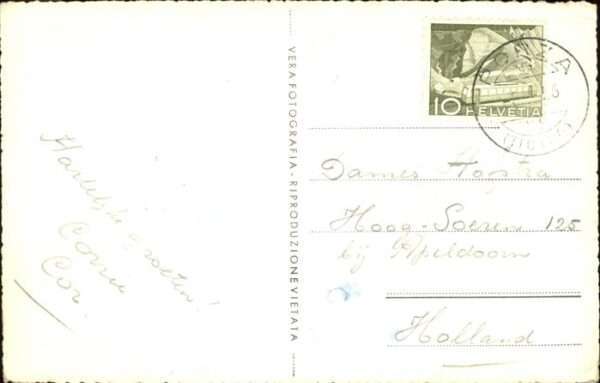 Hartelijke groeten!
Corrie
Cor.
VERA FOTOGRAFIA - RIPRODUZIONE VIETATA
10 HELVETIA
Dames Hopstra
Hoog-Soeren 125
bij Apeldoorn
Holland